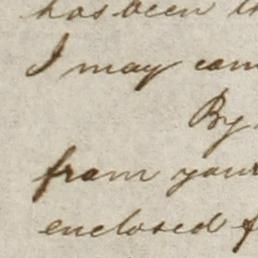 has been
I may
By
from your
enclosed